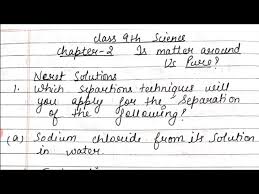 Class 9th Science
Chapter-2 Is matter around
Us Pure?
Ncert Solutions
1. Which separtions techniques will
you apply for the separation
of the following?
(a) Sodium chloride from its solution
in water.